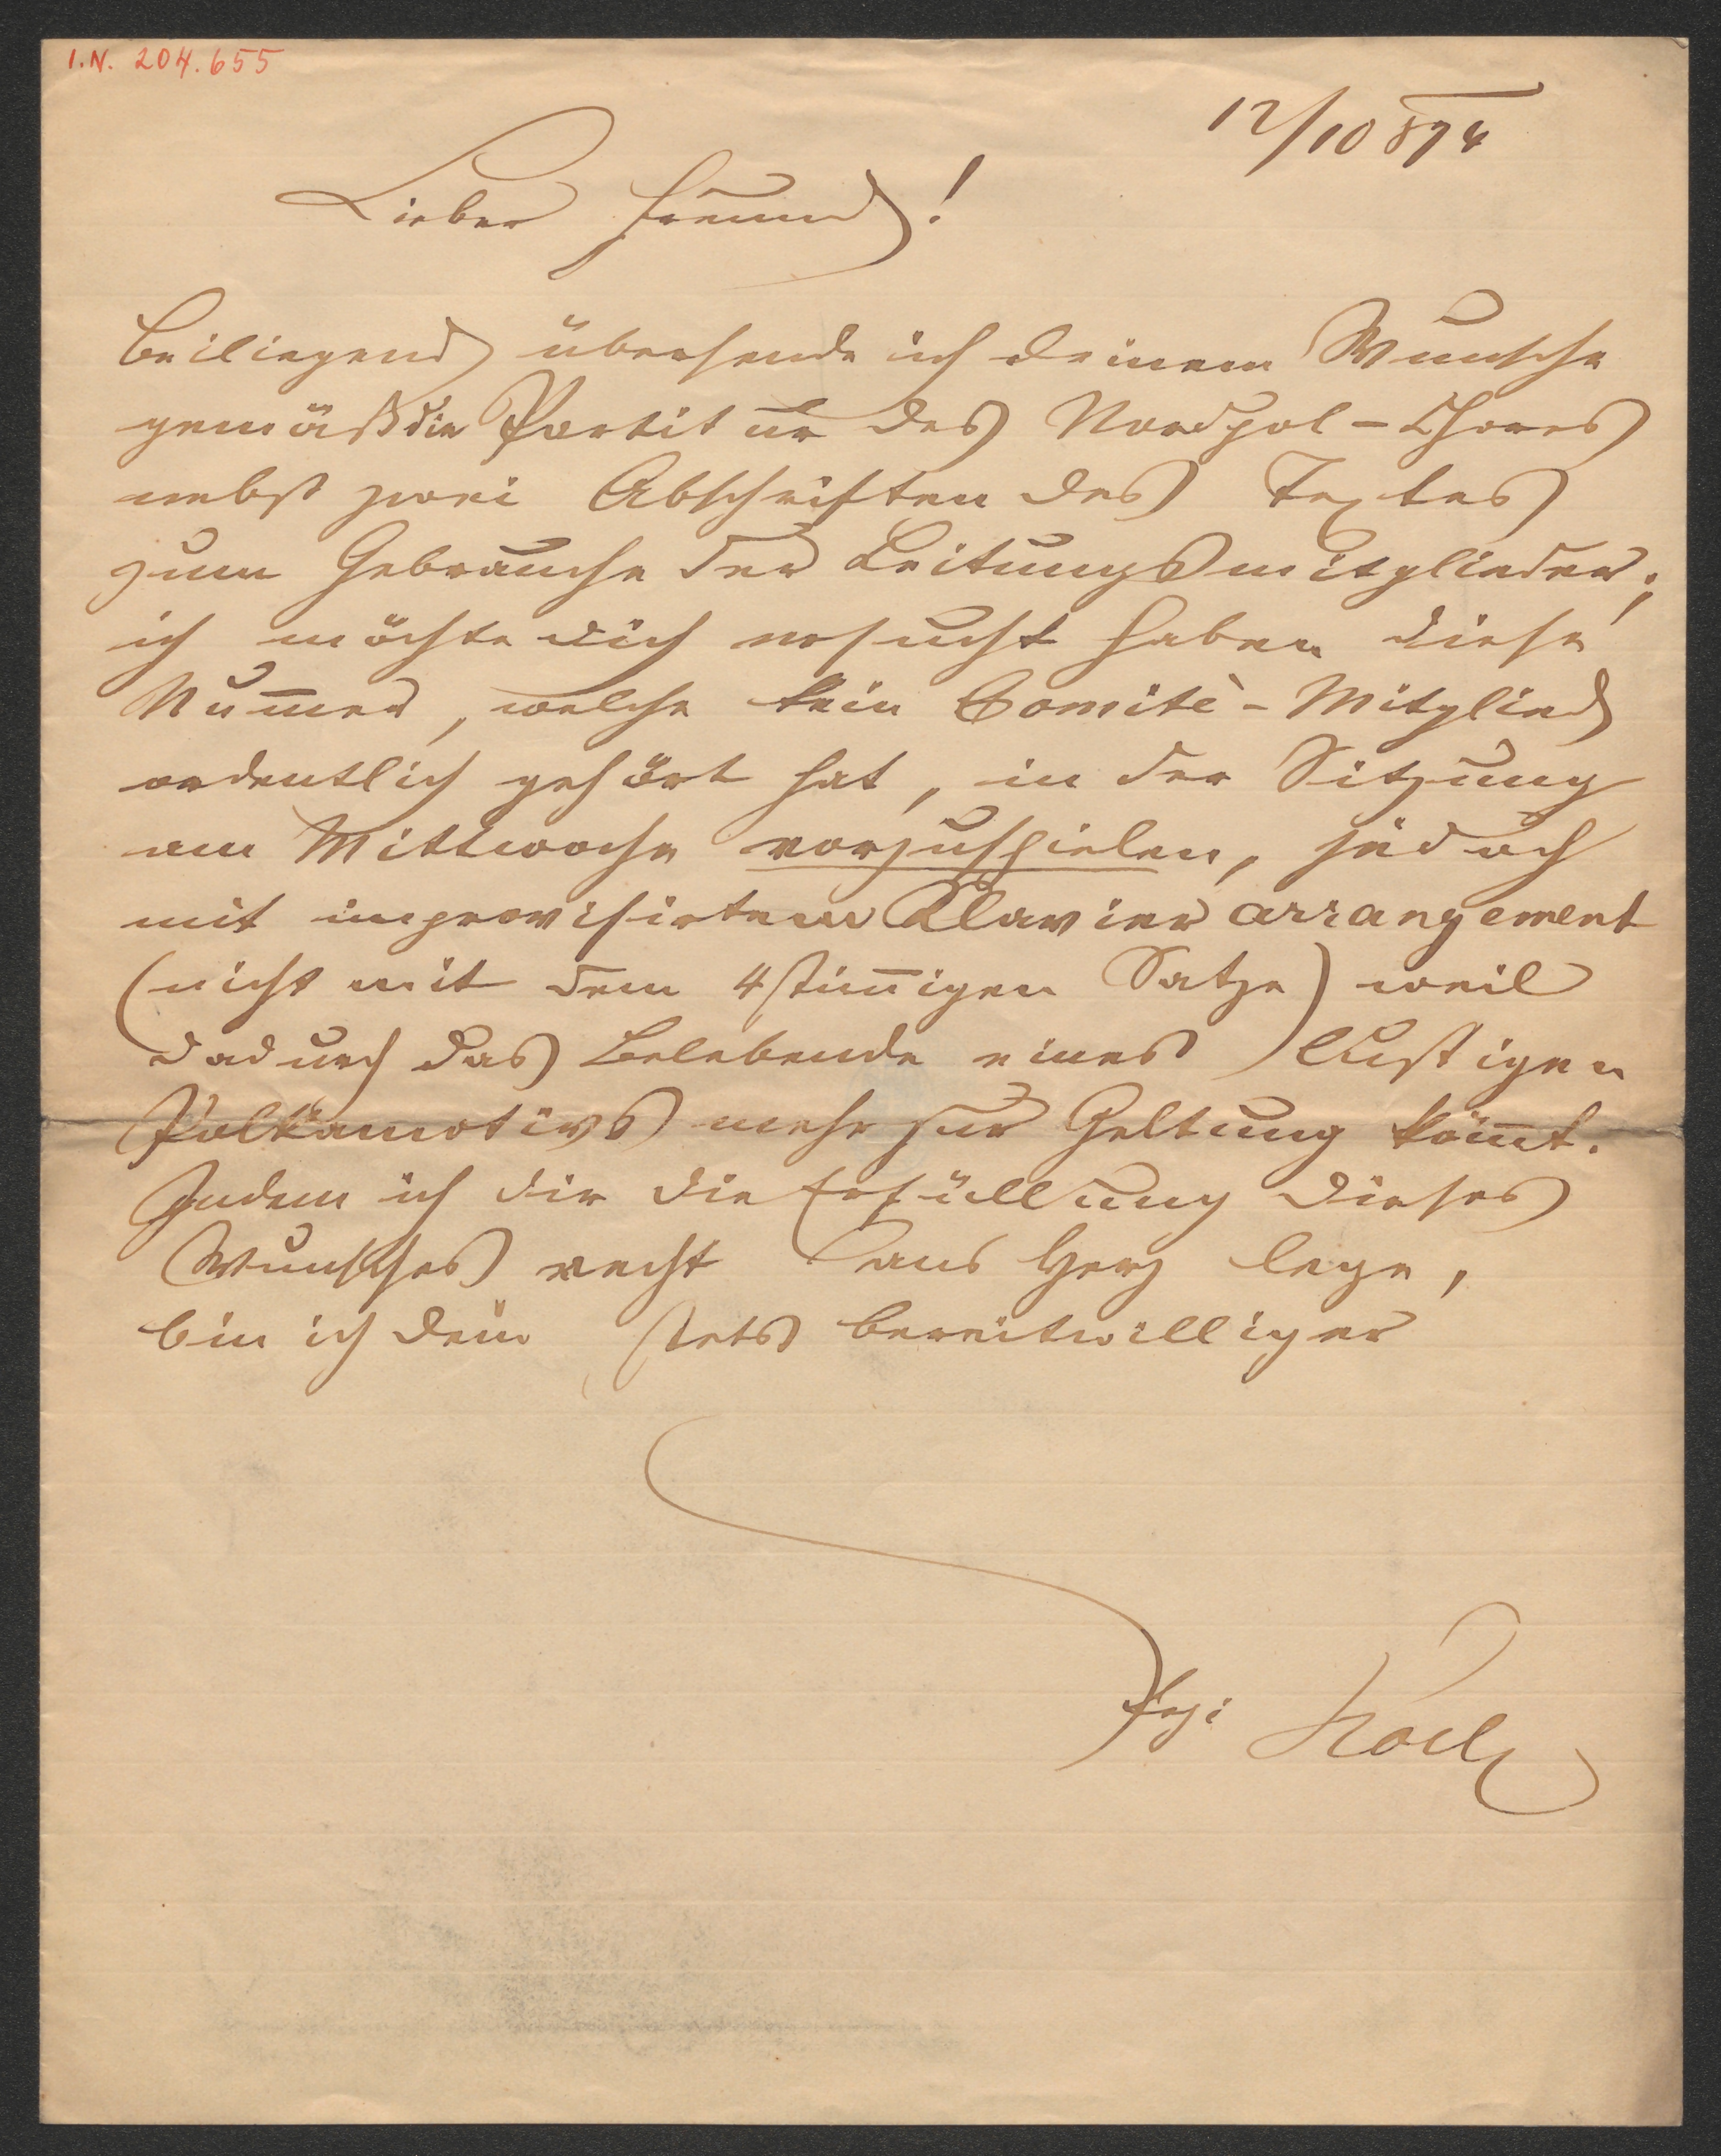 I.N. 204.655
12/10 874
Lieber Freund!
Beiliegend übersende ich deinem Wunsche
gemäß die Partitur des Nordpol-Chores
nebst zwei Abschriften des Textes
zum Gebrauche der Leitungsmitglieder;
ich möchte dich ersucht haben diese
Num̄er, welche kein Comitè-Mitglied
ordentlich gehört hat, in der Sitzung
am Mittwoche vorzuspielen, jedoch
mit improvisirtem Klavier arrangement
(nicht mit dem 4stim̄igen Satze) weil
dadurch das Belebende eines lustigen
Polkamotivs mehr zur Geltung köm̄t.
Indem ich dir die Erfüllung dieses
Wunsches recht ans Herz lege,
bin ich dein stets bereitwilliger
Koch